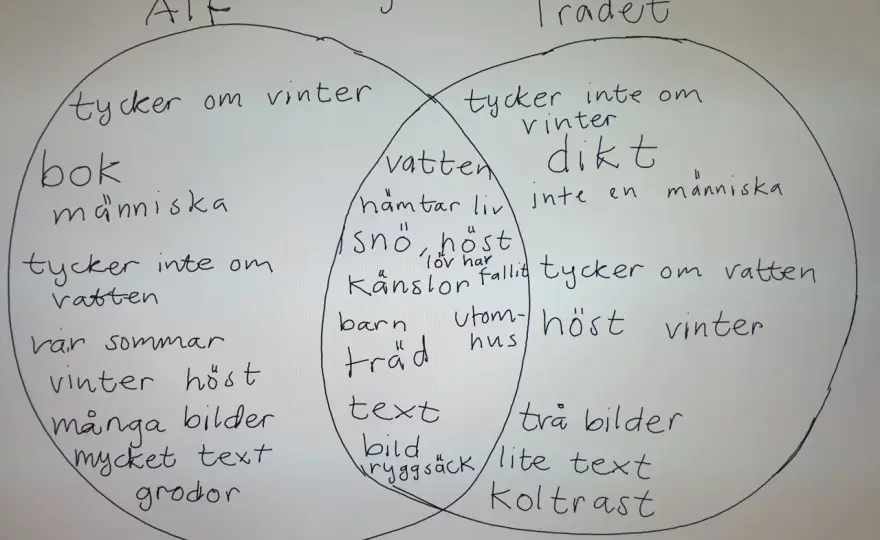 Alf
Trädet
tycker om vinter
bok
människa
tycker inte om
vatten
vår sommar
vinter höst
många bilder
mycket text
grodor
vatten
hämtar liv
snö, höst
löv har
fallit
känslor
barn
utom-
hus
träd
text
bild
ryggsäck
tycker inte om
vinter
dikt
inte en människa
tycker om vatten
höst vinter
två bilder
lite text
koltrast